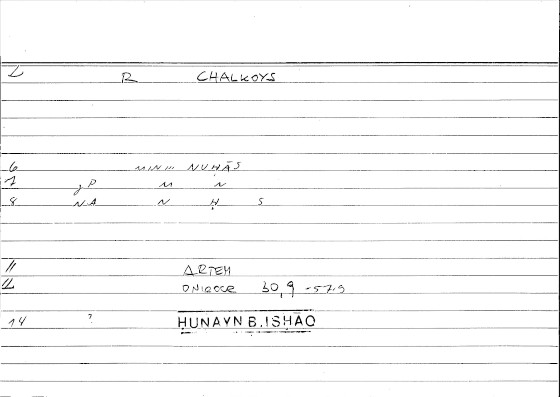 R CHALKOYS
6 MIN NUḤĀS
7 gP M N
8 NA N Ḥ S
11 ARTEM
12 ONIROCR 30,9 -57.9
14 ? ḤUNAYN B.ISḤAQ